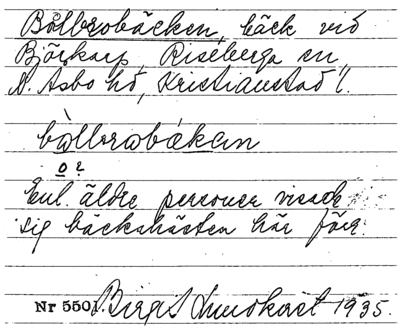 Bålbrobäcken, bäck vid
Bjärkarp, Riseberga sn,
N. Åsbo hd, Kristianstad l.
bålbrobäkan
o 2
Enl. äldre personer visade
sig bäckahästen här förr.
Nr 5501. Birgit Lundkvist 1935.